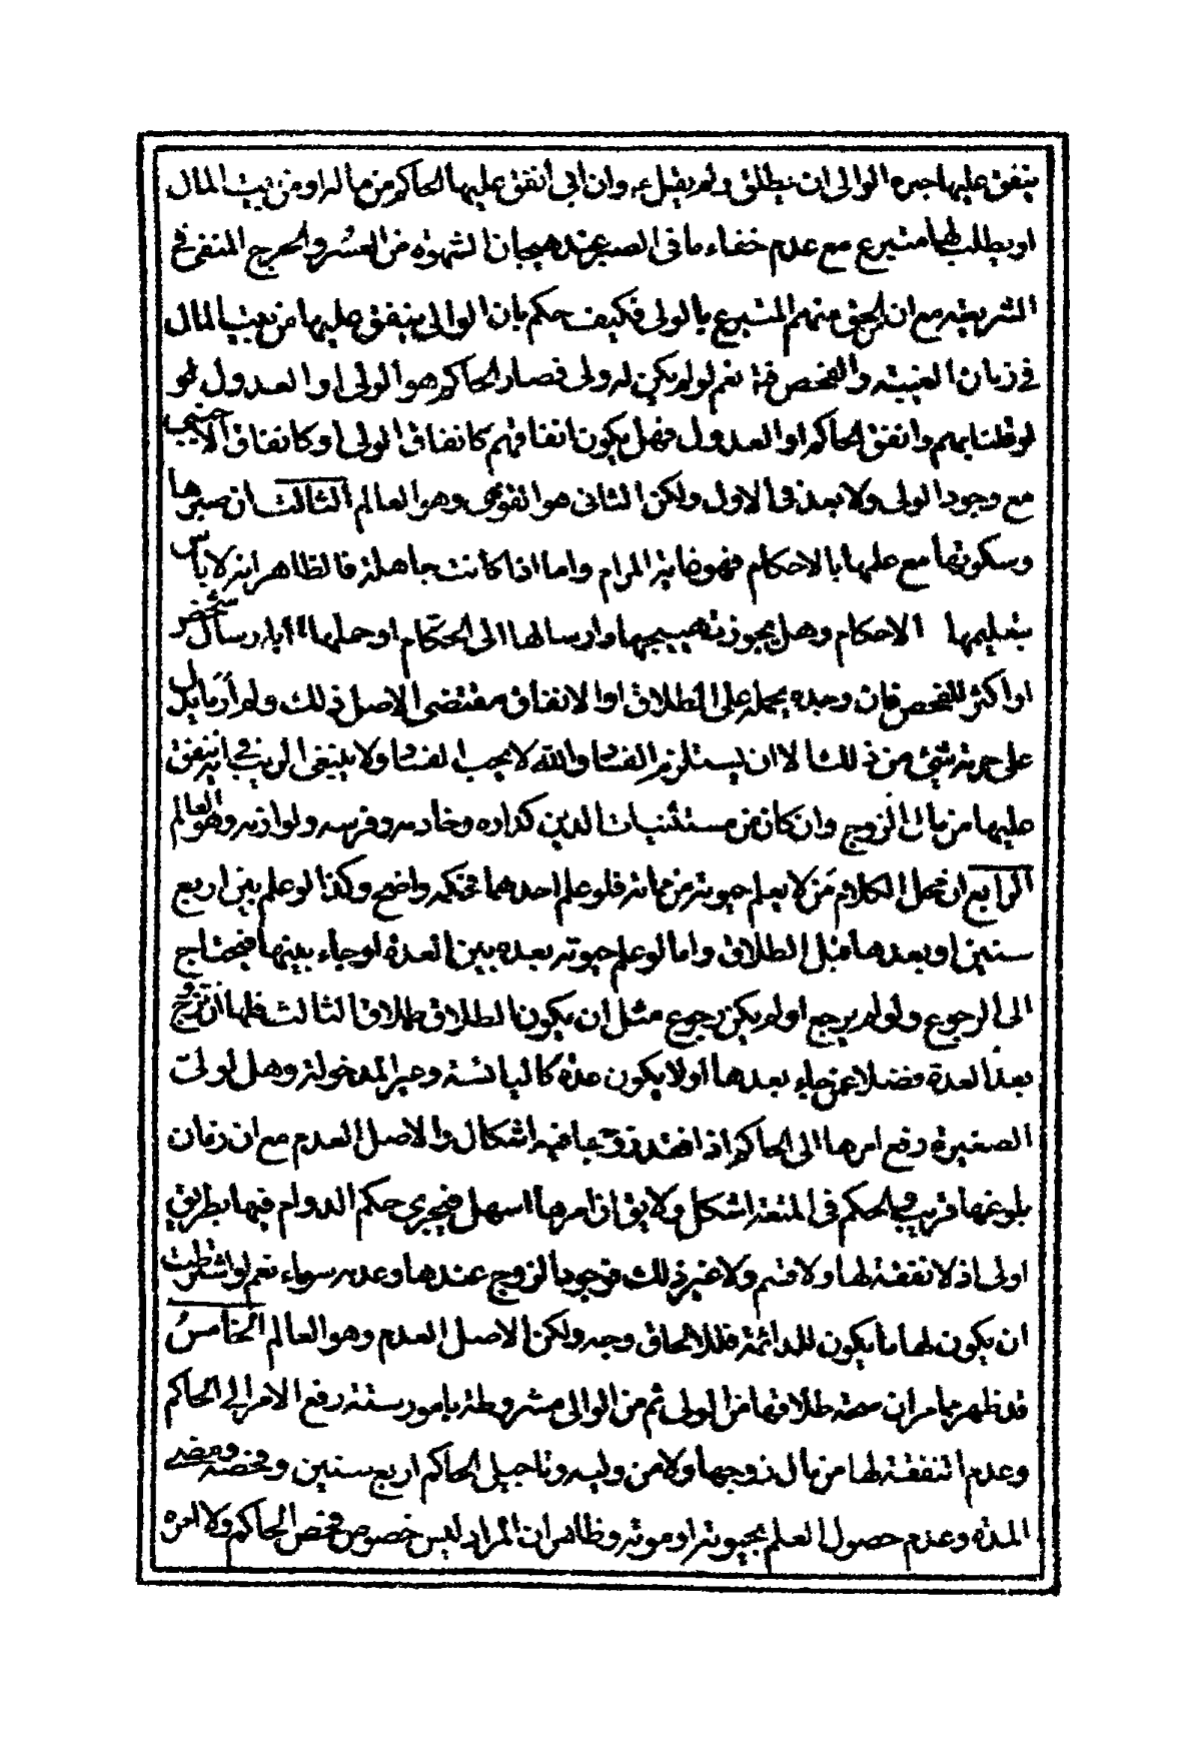 ينفق عليها جبره الوالى ان يطلق ولم يقبل عنه وان ابى انفق عليها الحاكم من ماله او من بيت المال
او يطلب لها متبرع مع عدم خفاء ما فى الصبر عند هيجان الشهوة من العسر والحرج المنفى فى
الشريعة مع ان لحق منهم المتبرع بالولى فكيف حكم بان الوالى ينفق عليها من بيت المال
فى زمان الغيبة والفحص فيه نعم لو لم يكن له ولى فصار الحاكم هو الولى او العدول لو
لو قلنا بهم وانفق الحاكم او العدول فهل يكون انفاقهم كانفاق الولى او كانفاق الاجنبى
مع وجود الولى ولا بعد فى الاول ولكن الثانى هو القوى وهو العالم الثالث ان صبرها
وسكوتها مع علمها بالاحكام فهو غاية المرام واما اذا كانت جاهلة فالظاهر انه لا باس
بتعليمها الاحكام وهل يجوز تهييجها وارسالها الى الحكام او حملها ارسال شخص
او اكثر للفحص فان وجده يحمله على الطلاق او الانفاق مقتضى الاصل ذلك ولم ار ما يدل
على حرمة شئ من ذلك الا ان يستلزم الفساد والله لا يحب الفساد ولا ينبغى الريب فى انه ينفق
عليها من مال الزوج وان كان من مستثنيات الدين كداره وخادمه وفرسه ولوازمه وهو العالم
الرابع ان محل الكلام من لا يعلم حيوته من مماته فلو علم احدهما فحكمه واضح وكذا لو علم بين اربع
سنين او بعدها قبل الطلاق واما لو علم حيوته بعده بين العدة او جاء بينها فيحتاج
الى الرجوع ولو لم يرجع او لم يكن رجوع مثل ان يكون الطلاق طلاقا ثالث فلها ان تزوج
بعد العدة فضلا عن جاء بعدها او لا يكون عدة كاليائسة وغير المدخولة وهل لولى
الصغيرة رفع امرها الى الحاكم اذا فقد زوجها فيه اشكال والاصل العدم مع ان زمان
بلوغها قريب والحكم فى المتعة اشكل ولا يق ان امرها اسهل فيجرى حكم الدوام فيها بطريق
اولى اذ لا نفقة لها ولا قسم ولا غير ذلك فوجود الزوج عندها وعدمه سواء نعم لو اشترطت
ان يكون لها ما يكون للدائمة فللالحاق وجه ولكن الاصل العدم وهو العالم الخامس
قد ظهر مما مر ان صحة طلاقها من الولى ثم من الوالى مشروطة بامور ستة رفع الامر الى الحاكم
وعدم النفقة لها من مال زوجها ولا من وليه وتاجيل الحاكم اربع سنين وفحصه ومضى
المدة وعدم حصول العلم بحيوته او موته وظاهر ان المراد ليس خصوص فحص الحاكم ولا امره